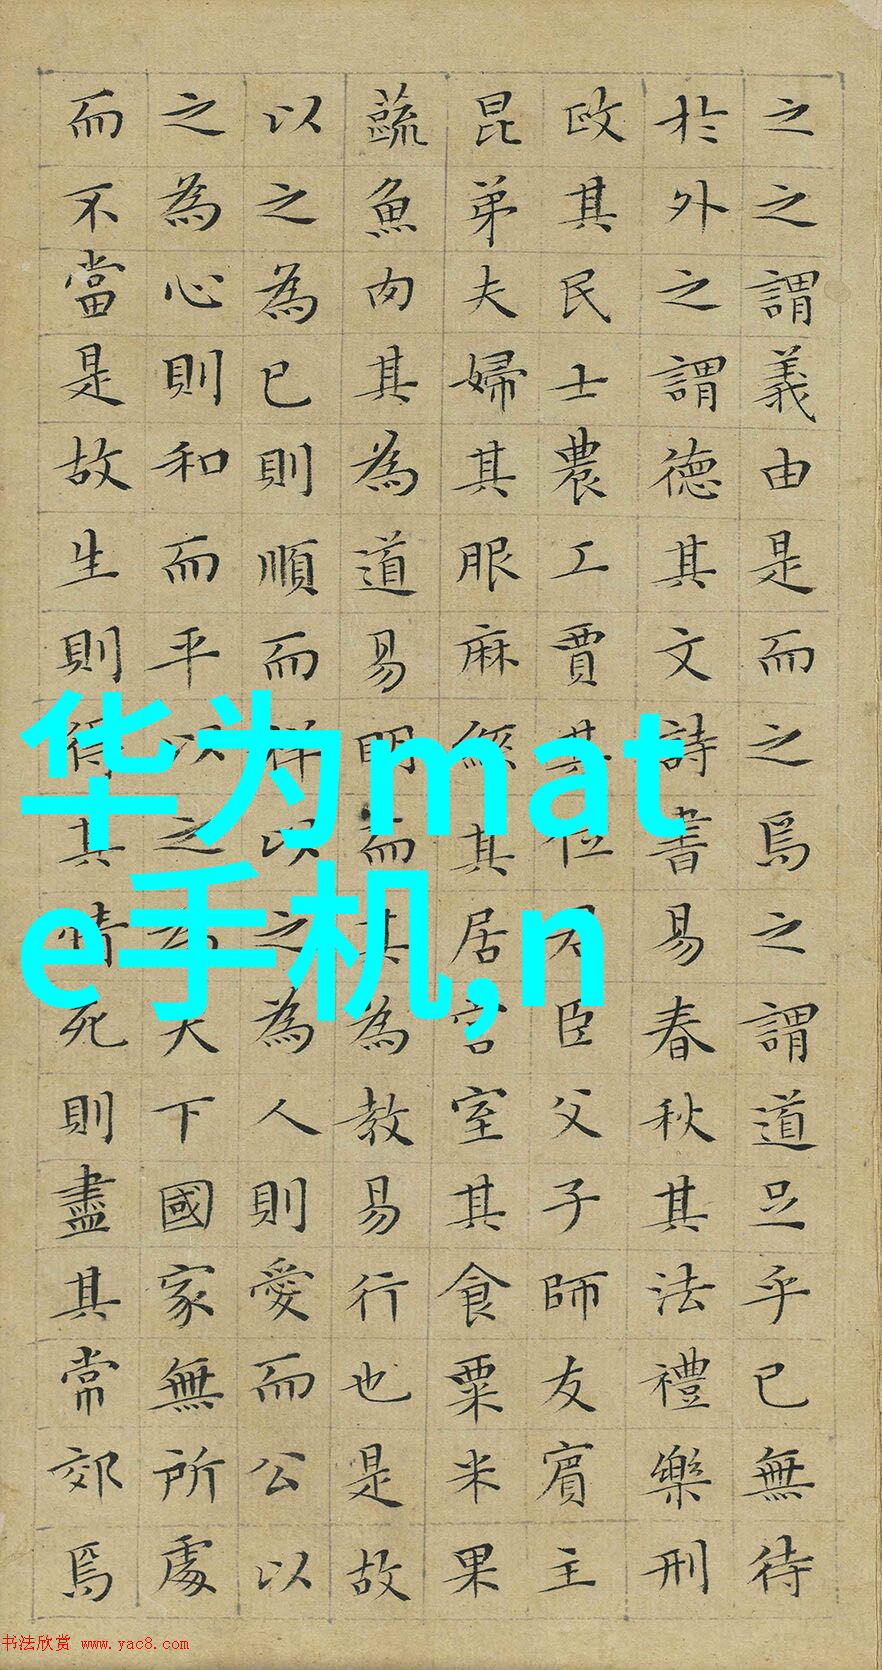 之之謂義由是而之焉之謂道足乎已無待
於外之謂德其文詩書易春秋其法禮樂刑
政其民士農工賈其位君臣父子師友賓主
昆弟夫婦其服麻絲其居宮室其食粟米果
蔬魚肉其為道易明而其為教易行也是故
以之為已則順而祥以之為人則愛而公以
之為心則和而平以之為天下國家無所處
而不當是故生則得其情死則盡其常郊焉
华为mat
e手机,n
书法欣赏 www.yac8.com